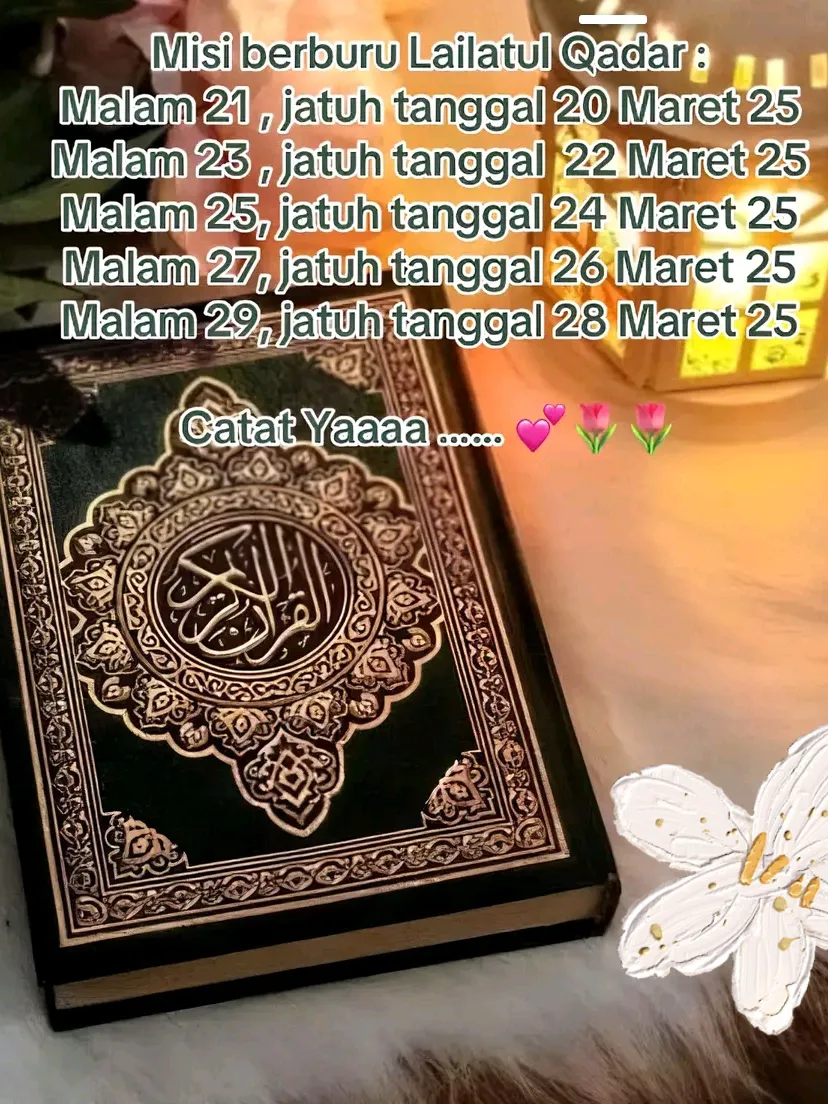 Misi berburu Lailatul Qadar :
Malam 21 , jatuh tanggal 20 Maret 25
Malam 23 , jatuh tanggal 22 Maret 25
Malam 25, jatuh tanggal 24 Maret 25
Malam 27, jatuh tanggal 26 Maret 25
Malam 29, jatuh tanggal 28 Maret 25
Catat Yaaaa ...... 💕🌷🌷
القرآن الكريم